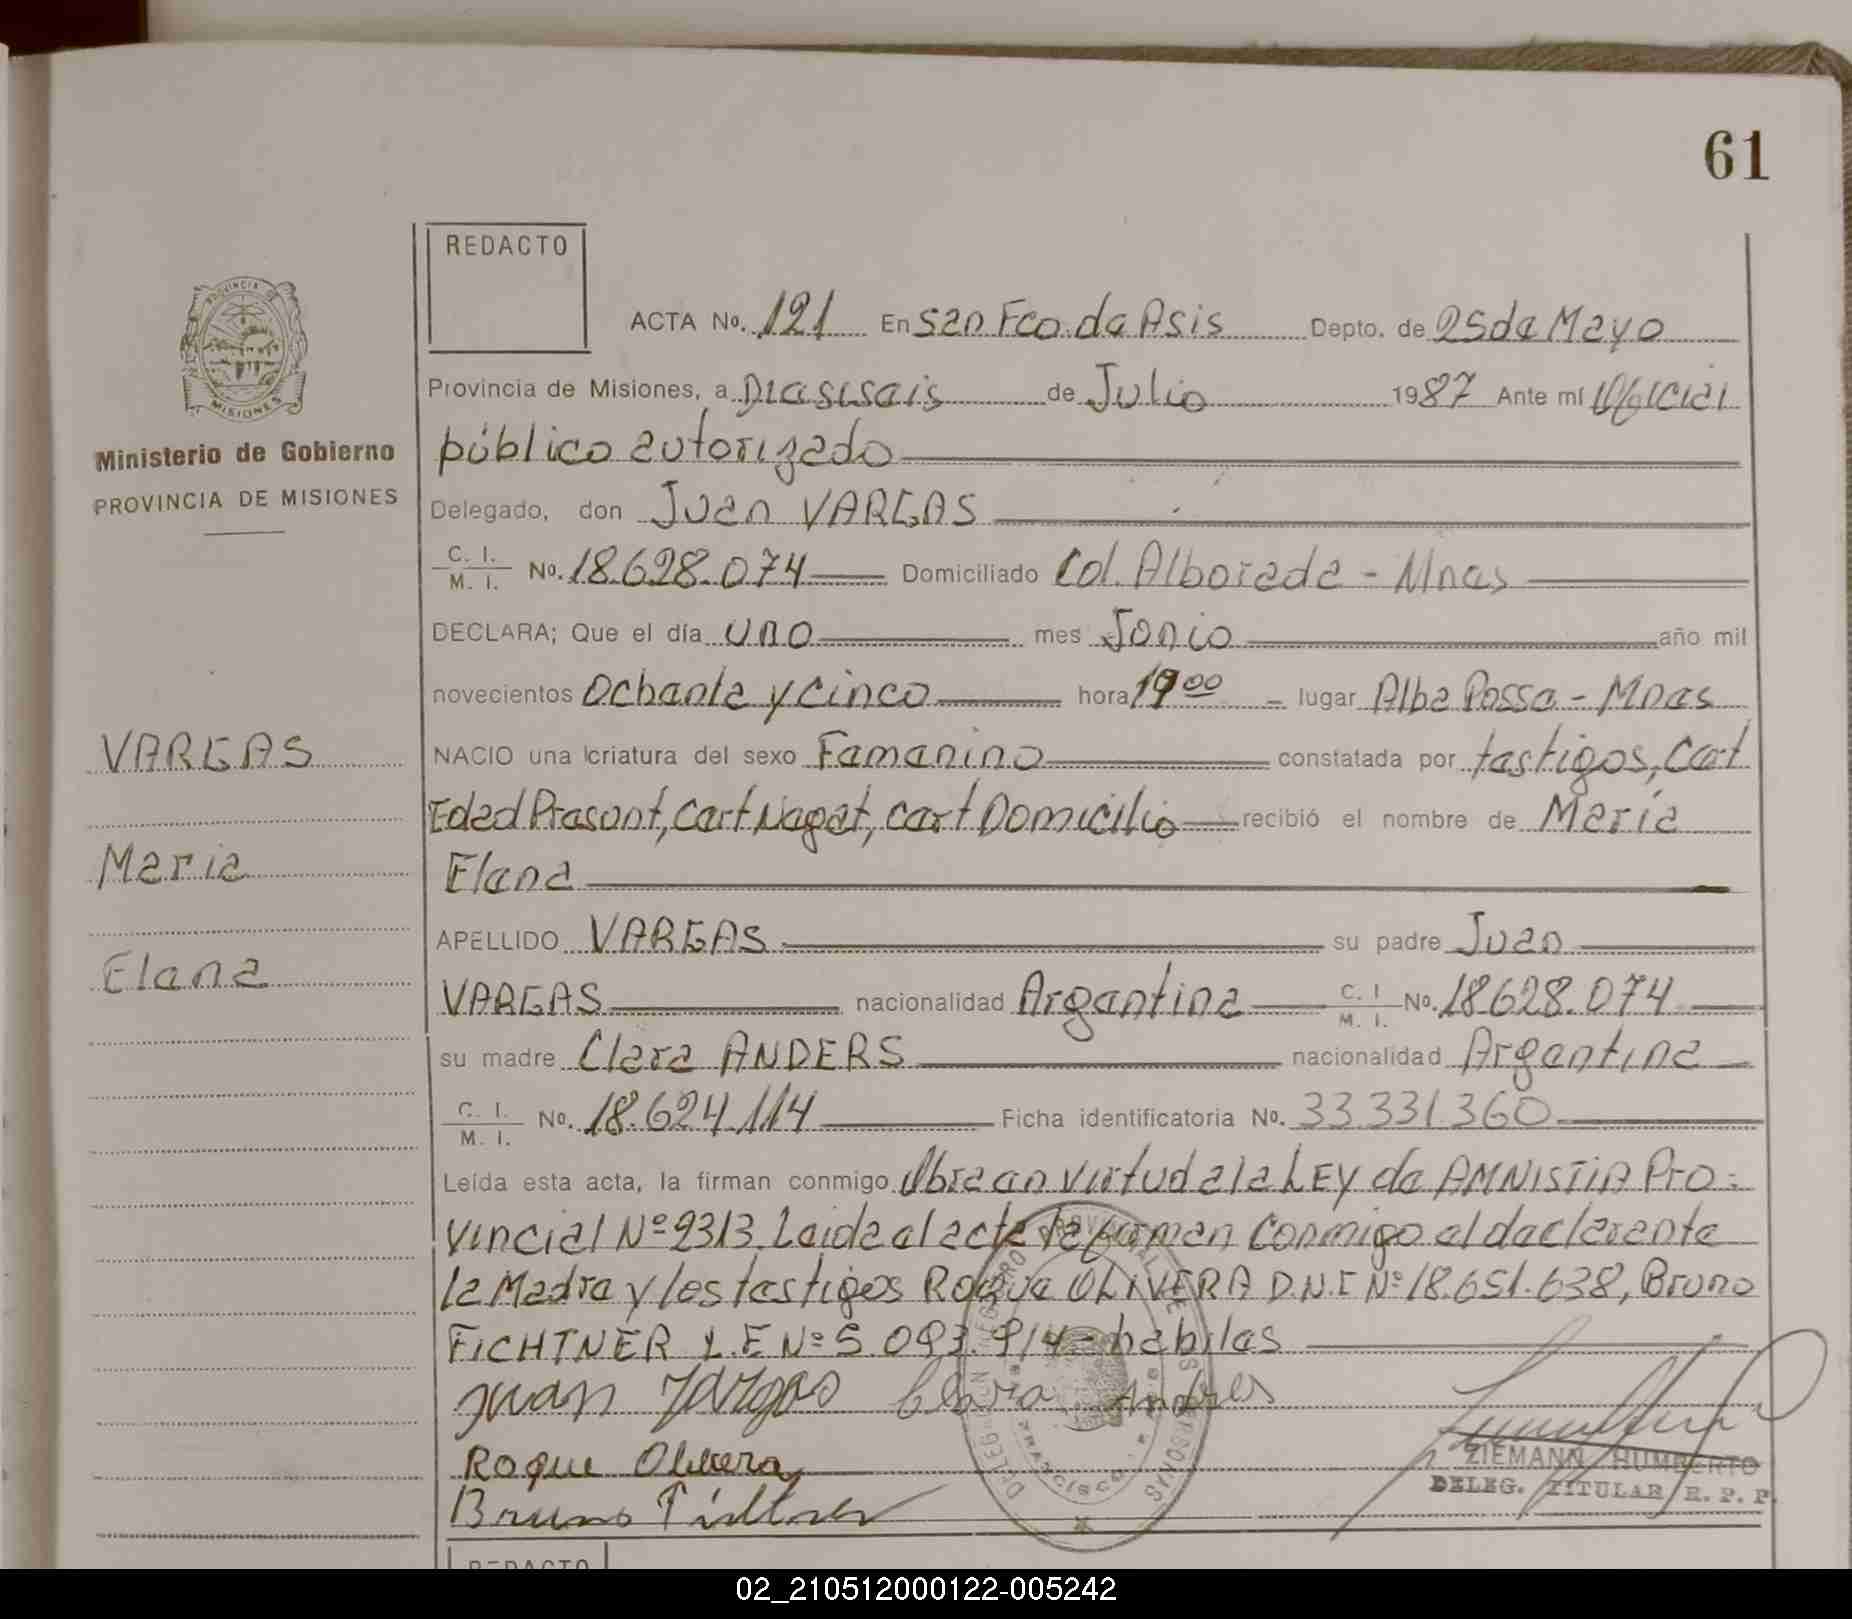 61
REDACTO
ACTA No. 121 En san Fco. de Asis Depto. de 25 de Mayo
Provincia de Misiones, a Diesiseis de Julio 1987 Ante mí Oficial
público autorizado
Delegado, don Juan VARGAS
C. I. / M. I. No. 18.628.074 Domiciliado Col. Alborada - Mnes
DECLARA; Que el día uno mes Junio año mil
novecientos Ochenta y Cinco hora 19 00 lugar Alba Possa - Mnes
NACIO una criatura del sexo Femenino constatada por testigos, Cert
Edad Presunt, Cert Negat, Cert Domicilio recibió el nombre de María
Elena
APELLIDO VARGAS su padre Juan
VARGAS nacionalidad Argentina C. I. / M. I. No. 18628.074
su madre Clara ANDERS nacionalidad Argentina
C. I. / M. I. No. 18.624.114 Ficha identificatoria No. 33.331.360
Leída esta acta, la firman conmigo Obra en virtud a la LEY de AMNISTIA Pro-
vincial Nº 2313. Leida el acta la firman Conmigo el declarante
la Madre y los testigos Roque OLIVERA D.N.I Nº 18.651.638, Bruno
FICHTNER L.E Nº 5.093.914 - habiles
Juan Vargas Clara Andres
Roque Olivera
Bruno Fichtner
ZIEMANN HUMBERTO
DELEG. TITULAR R. P. P.
PROVINCIA DE
MISIONES
Ministerio de Gobierno
PROVINCIA DE MISIONES
VARGAS
Maria
Elena
REDACTO
02_210512000122-005242